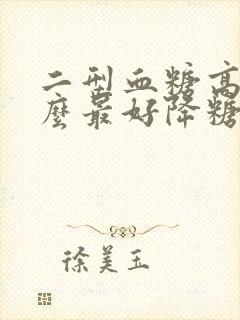 二型血糖高
麽最好降糖
徐美玉